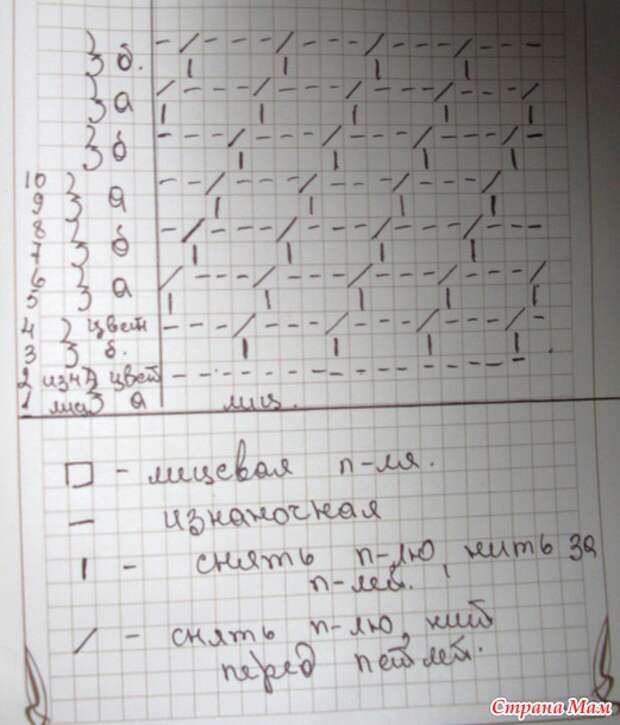 б. - / - - - / - - - / - - - / - - -
| | | |
а / - - - / - - - / - - - / - - - /
| | | | |
б - - - / - - - / - - - / - - - / -
| | | |
10 - - / - - - / - - - / - - - /
9 а | | | |
8 - / - - - / - - - / - - - / - - -
7 б | | | |
6 / - - - / - - - / - - - / - - - /
5 а | | | | |
4 цвет - - - / - - - / - - - / - - - / -
3 б. | | | |
2 изн цвет - - - - - - - - - - - - - - -
1 лиц а лиц.
□ - лицевая п-ля.
— изнаночная
| - снять п-лю, нить за
п-лей.
/ - снять п-лю, нить
перед петлей.
Страна Мам